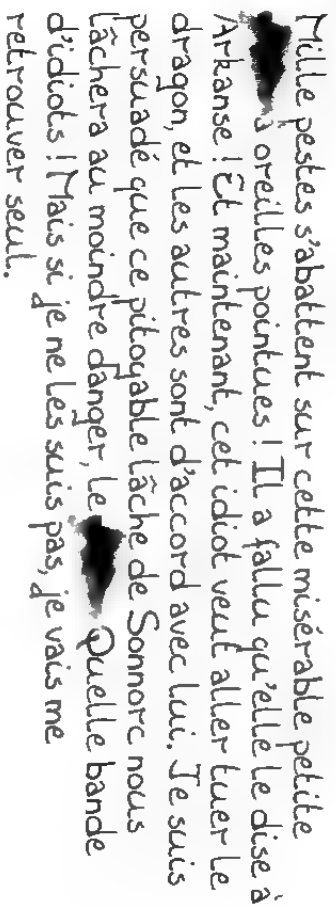 Mille pestes s'abattent sur cette misérable petite
à oreilles pointues ! Il a fallu qu'elle le dise à
Arkanse ! Et maintenant, cet idiot veut aller tuer le
dragon, et les autres sont d'accord avec lui. Je suis
persuadé que ce pitoyable lâche de Sonnorc nous
lâchera au moindre danger, le Quelle bande
d'idiots ! Mais si je ne les suis pas, je vais me
retrouver seul.